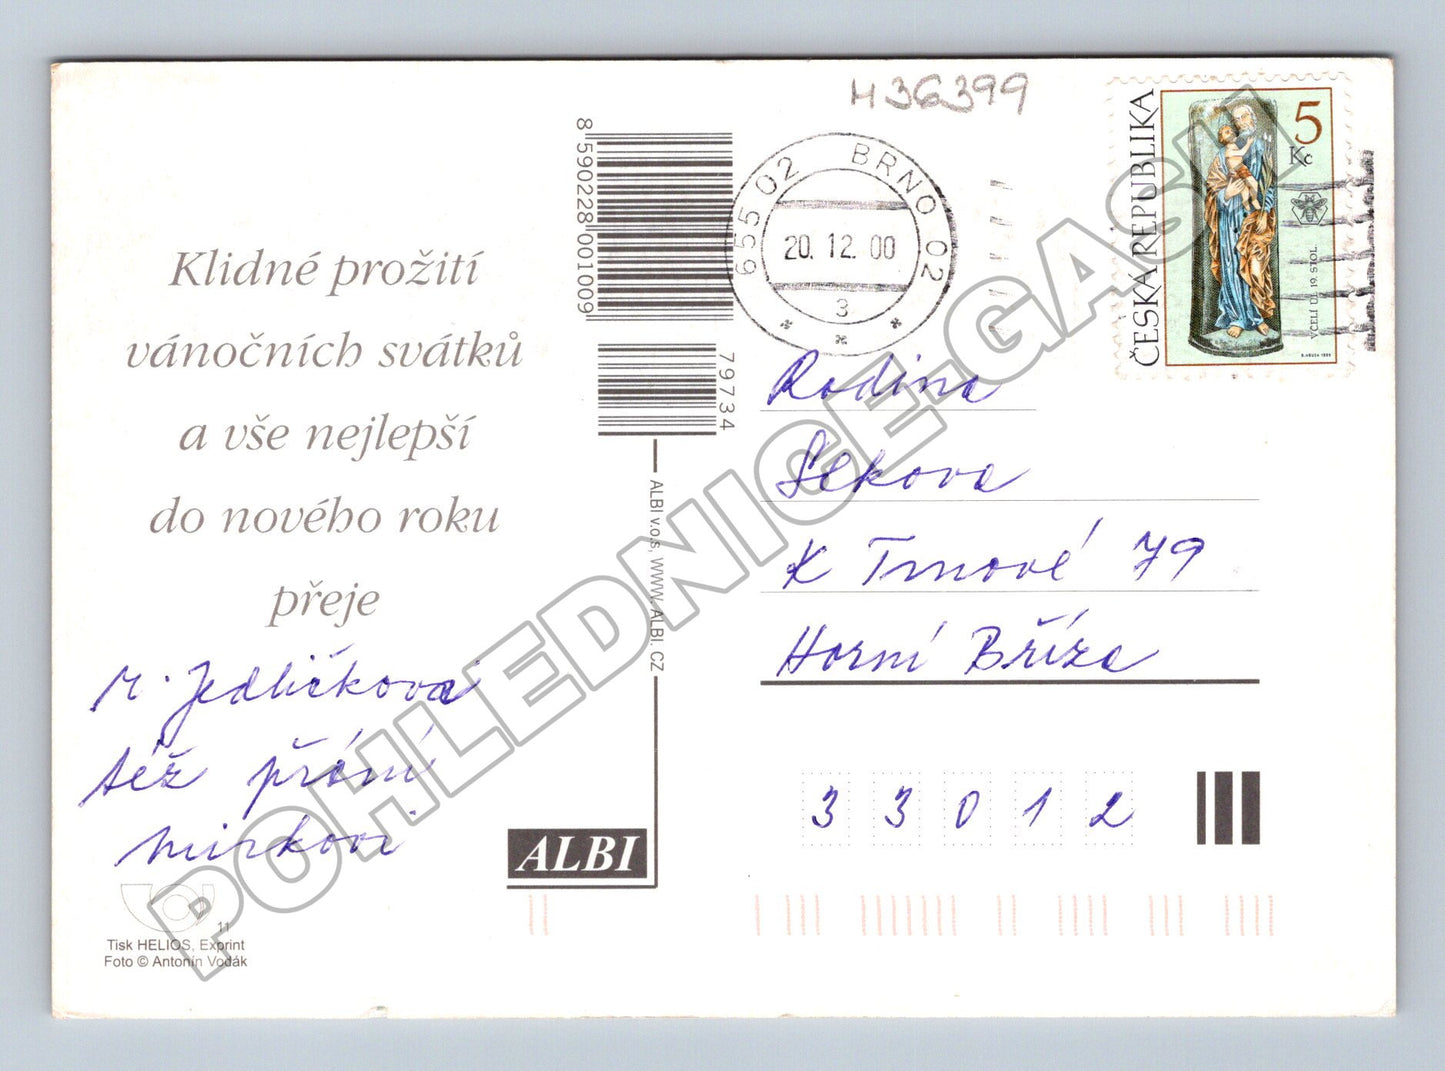 Klidné prožití
vánočních svátků
a vše nejlepší
do nového roku
přeje
M. Jedličková
též přání
Mirkovi
11
Tisk HELIOS, Exprint
Foto © Antonín Vodák
8 590228 001009
79734
ALBI v.o.s, WWW. ALBI. CZ
ALBI
H36399
655 02 BRNO 02
20. 12. 00
3
ČESKÁ REPUBLIKA
5
Kč
VČELÍ ÚL 19. STOL.
Rodina
Sekova
K Trnové 79
Horní Bříza
3 3 0 1 2
POHLEDNICE-GASH